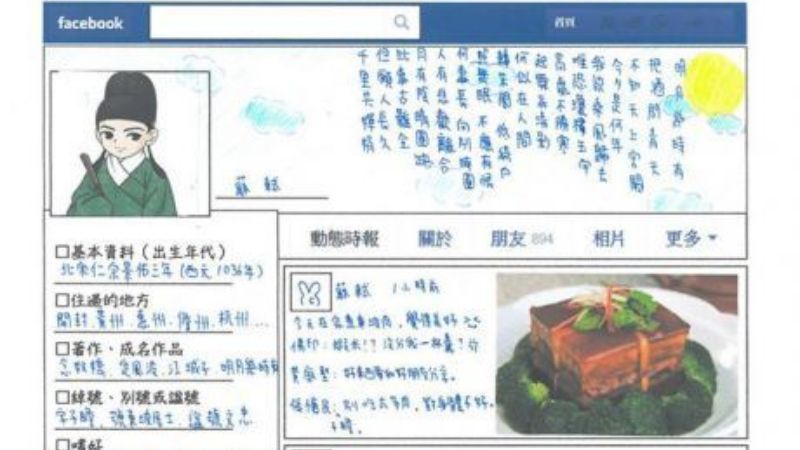 facebook
首頁
明月幾時有
把酒問青天
不知天上宮闕
今夕是何年
我欲乘風歸去
唯恐瓊樓玉宇
高處不勝寒
起舞弄清影
何似在人間
轉朱閣 低綺戶
照無眠 不應有恨
何事長向別時圓
人有悲歡離合
月有陰晴圓缺
此事古難全
但願人長久
千里共嬋娟
蘇軾
動態時報 關於 朋友 894 相片 更多
□基本資料（出生年代）
北宋仁宗景佑三年 (西元1036年)
□住過的地方
開封.黃州.惠州.儋州.杭州...
□著作、成名作品
念奴嬌、定風波、江城子、明月幾時有
□綽號、別號或諡號
字子瞻、號東坡居士、諡號文忠
□嗜好
蘇軾 1小時前
今天在家煮東坡肉，覺得美好
佛印：!? 沒分我一
黃庭堅：好東西要和好朋友分享。
別吃太多肉，對身體不好。
子瞻。